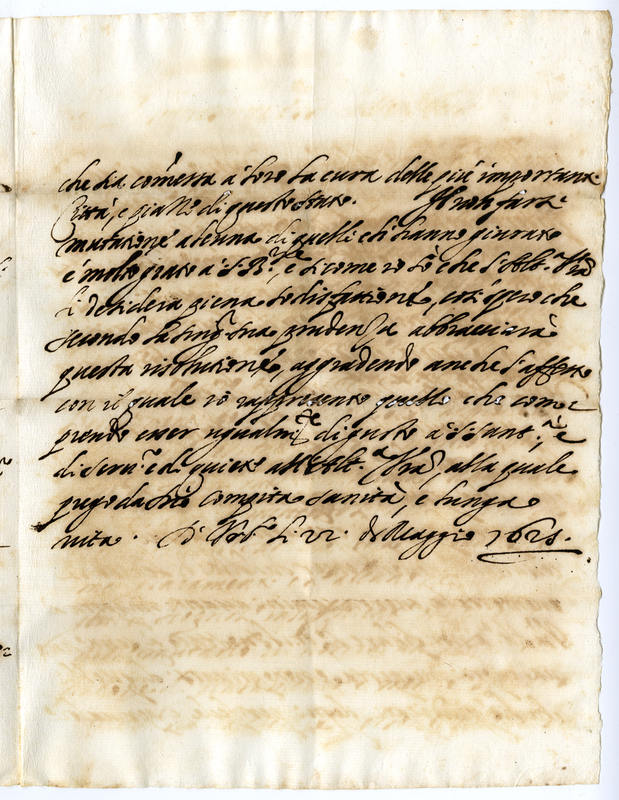 che sia com̃essa à loro la cura delle più importanti
Città, e piazze di questo stato. Il non fara
mutatione alcuna di quelli ch'hanno giurato
é molto grato à S. B.ne, e si come io sò che l'Alt.a V'ra
li desidera piena sodisfatione, così spero che
secondo la sing.r sua prudenza abbraccierà
questa risolutione, aggradendo anche l'affetto
con il quale io rappresento quello che com=
prendo esser ugualm.te di gusto à S. Sant.tà, e
di seru.o e di quiete all'Alt.a V'ra, alla quale
prego da Dio compita sanità, e lunga
uita. Di li VI. di Maggio